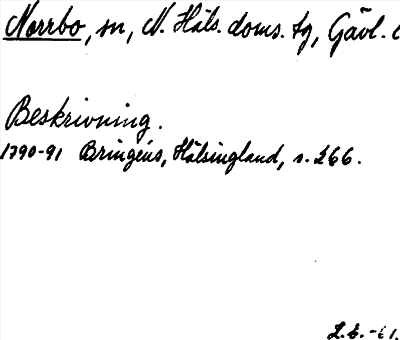 Norrbo, sn, N. Häls. doms. tg, Gävl.
Beskrivning.
1790-91 Bringéus, Hälsingland, s. 266.